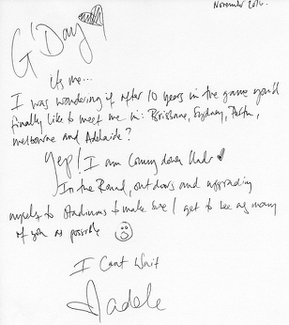 November 2016.
G'Day
its me...
I was wondering if after 10 years in the game you'd
finally like to meet me in: Brisbane, Sydney, Perth,
Melbourne and Adelaide?
Yep! I am coming down Under
In the Round, outdoors and upgrading
myself to Stadiums to make sure I get to see as many
of you as possible
I Cant Wait
Adele